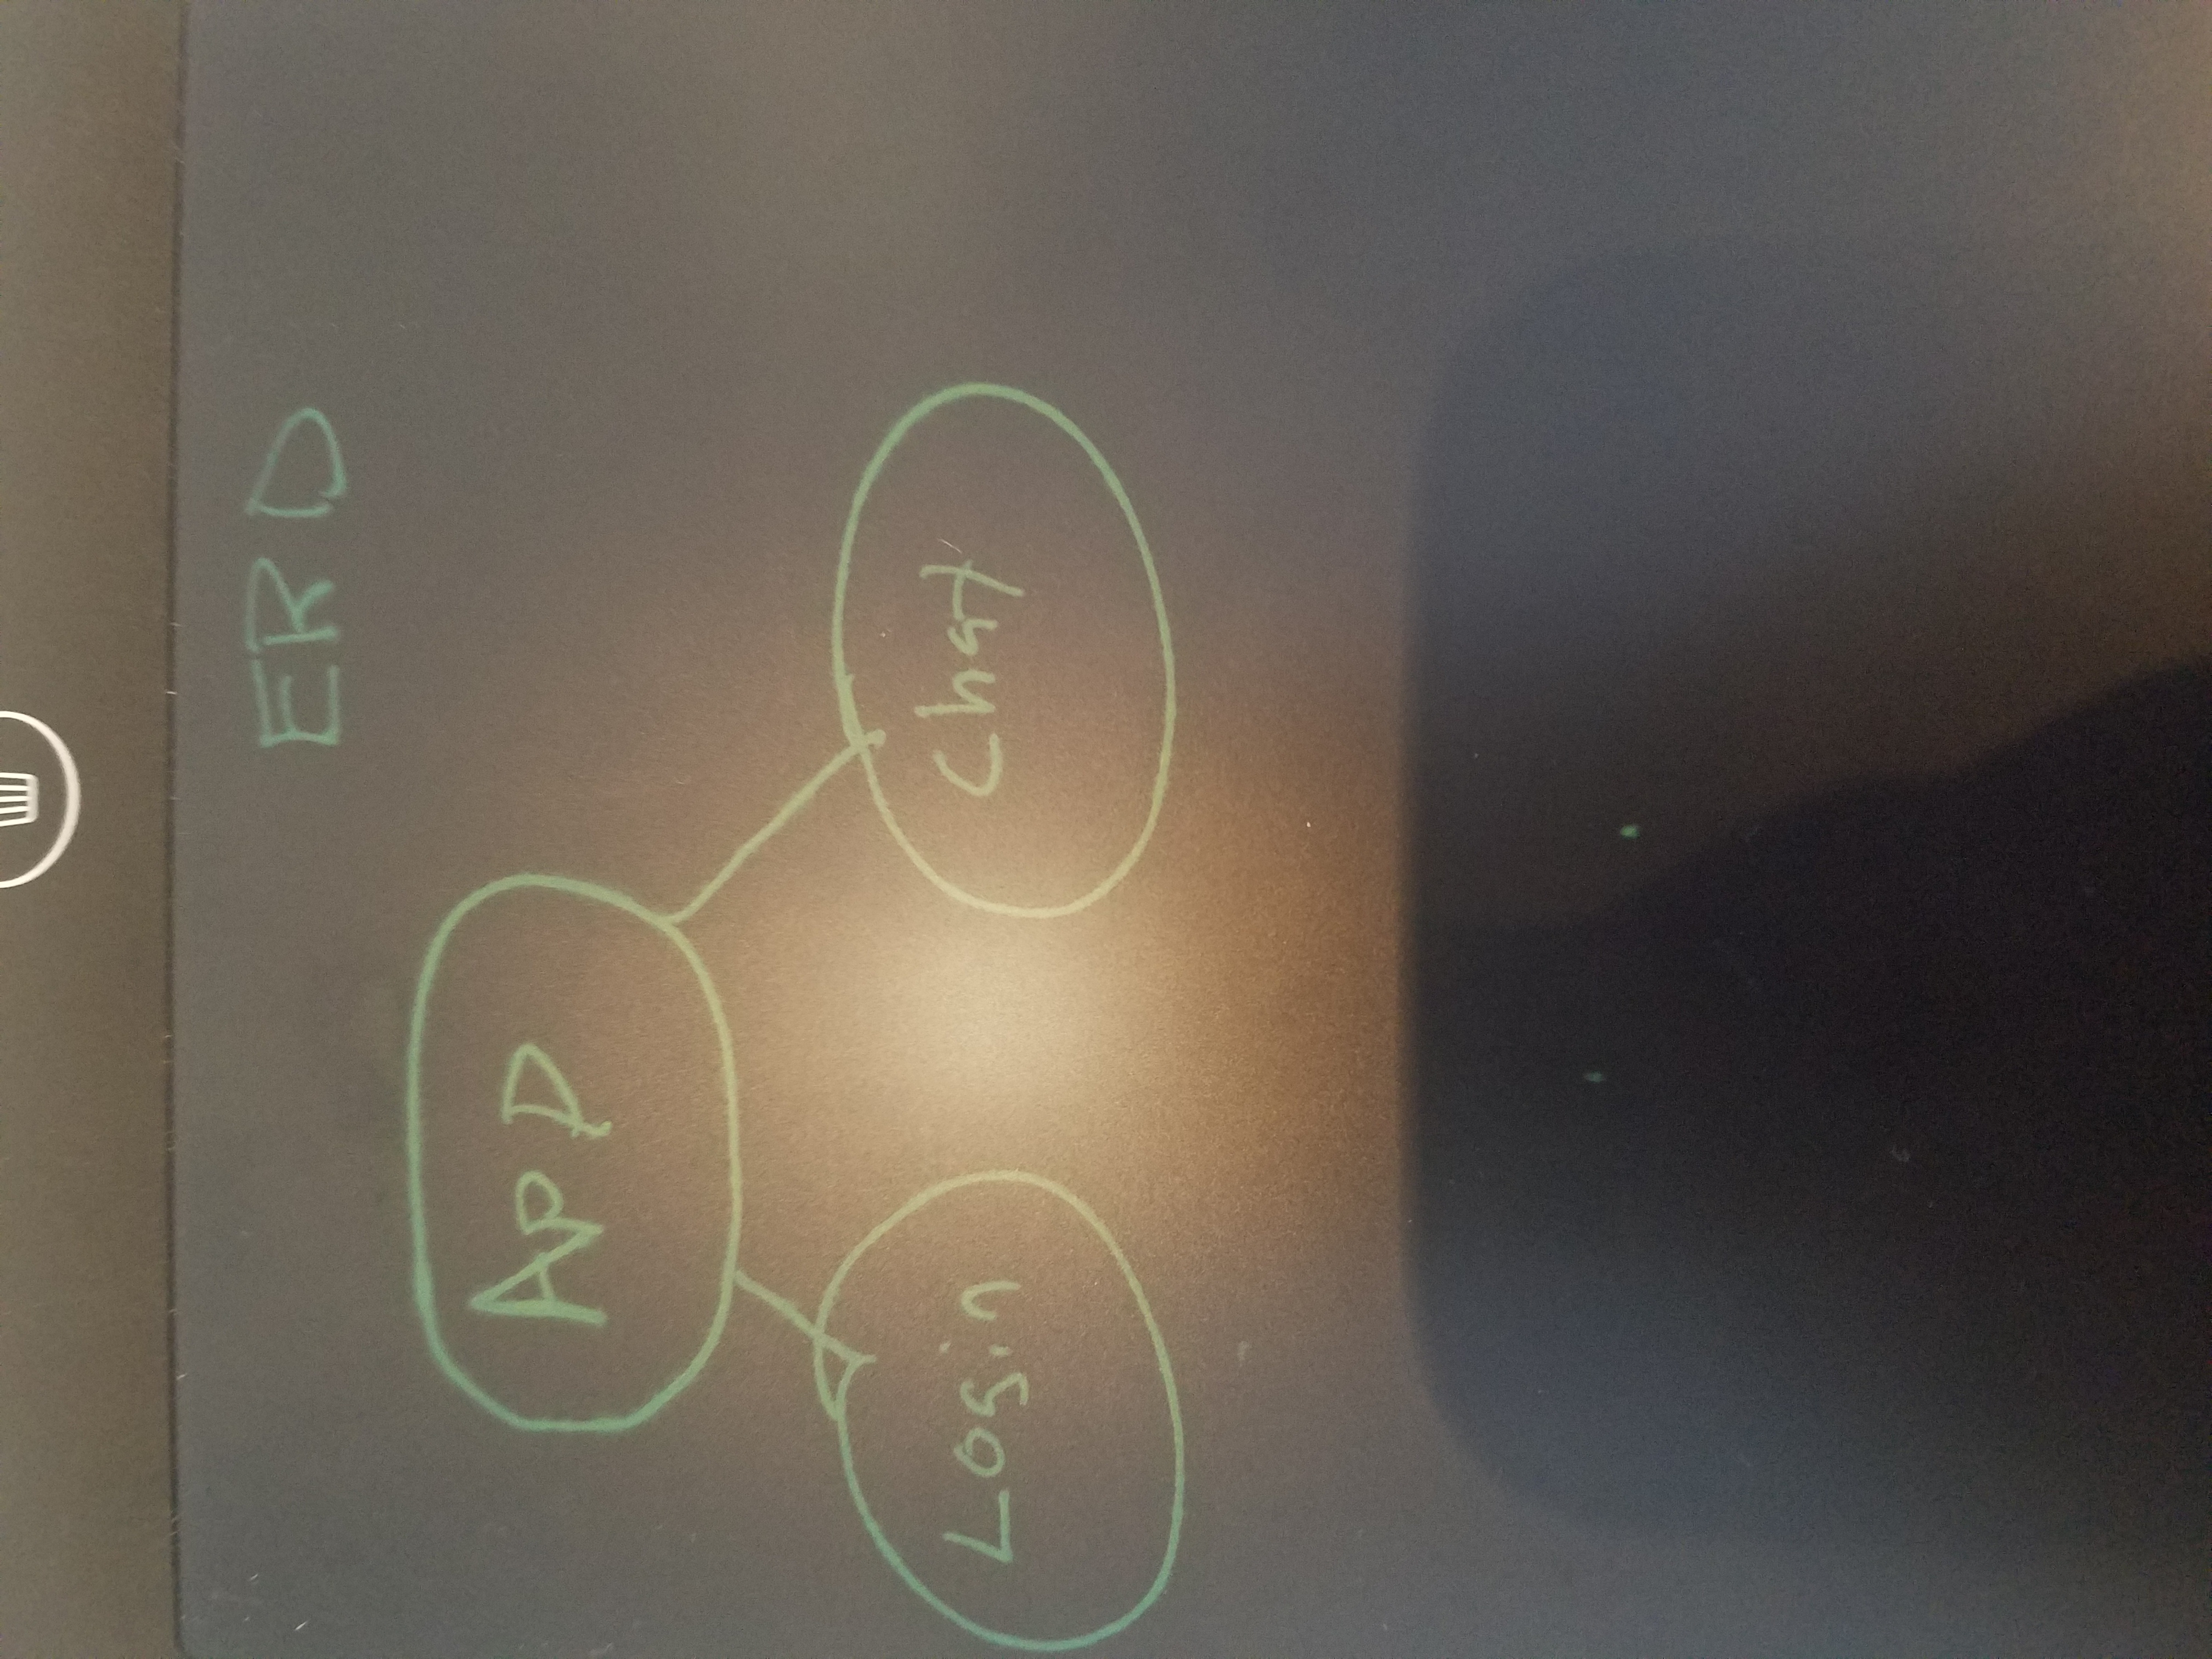 ERD
App
Login
Chat